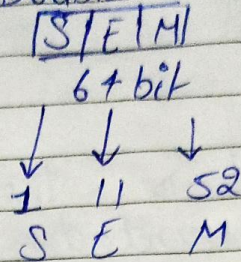 |S|E|M|
64 bit
1 11 52
S E M